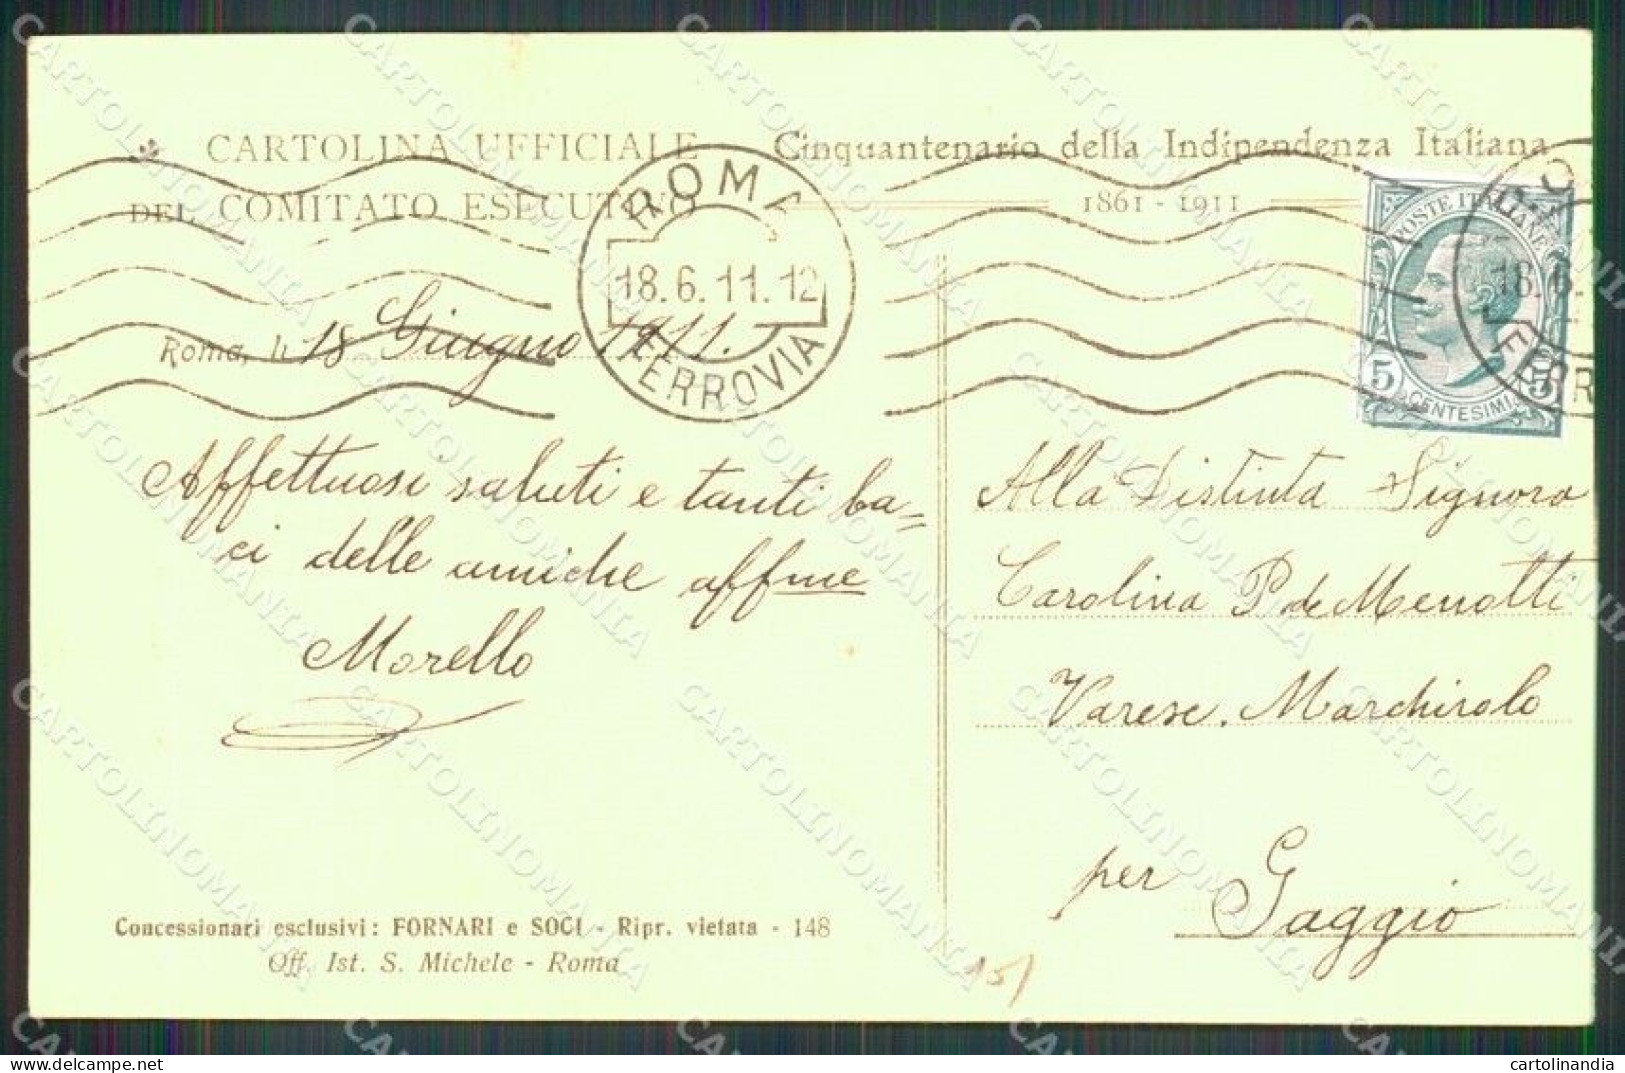 CARTOLINA UFFICIALE
DEL COMITATO ESECUTIVO
Cinquantenario della Indipendenza Italiana
1861 - 1911
ROMA
18.6.11.12
FERROVIA
POSTE ITALIANE
5 CENTESIMI 5
Roma, li 18 Giugno 1911.
Affettuosi saluti e tanti ba=
ci delle amiche affme
Morello
Alla Distinta Signora
Carolina P. de Menotti
Varese. Marchirolo
per Gaggio
Concessionari esclusivi: FORNARI e SOCI - Ripr. vietata - 148
Off. Ist. S. Michele - Roma
15/
CARTOLINOMANIA
cartolinandia